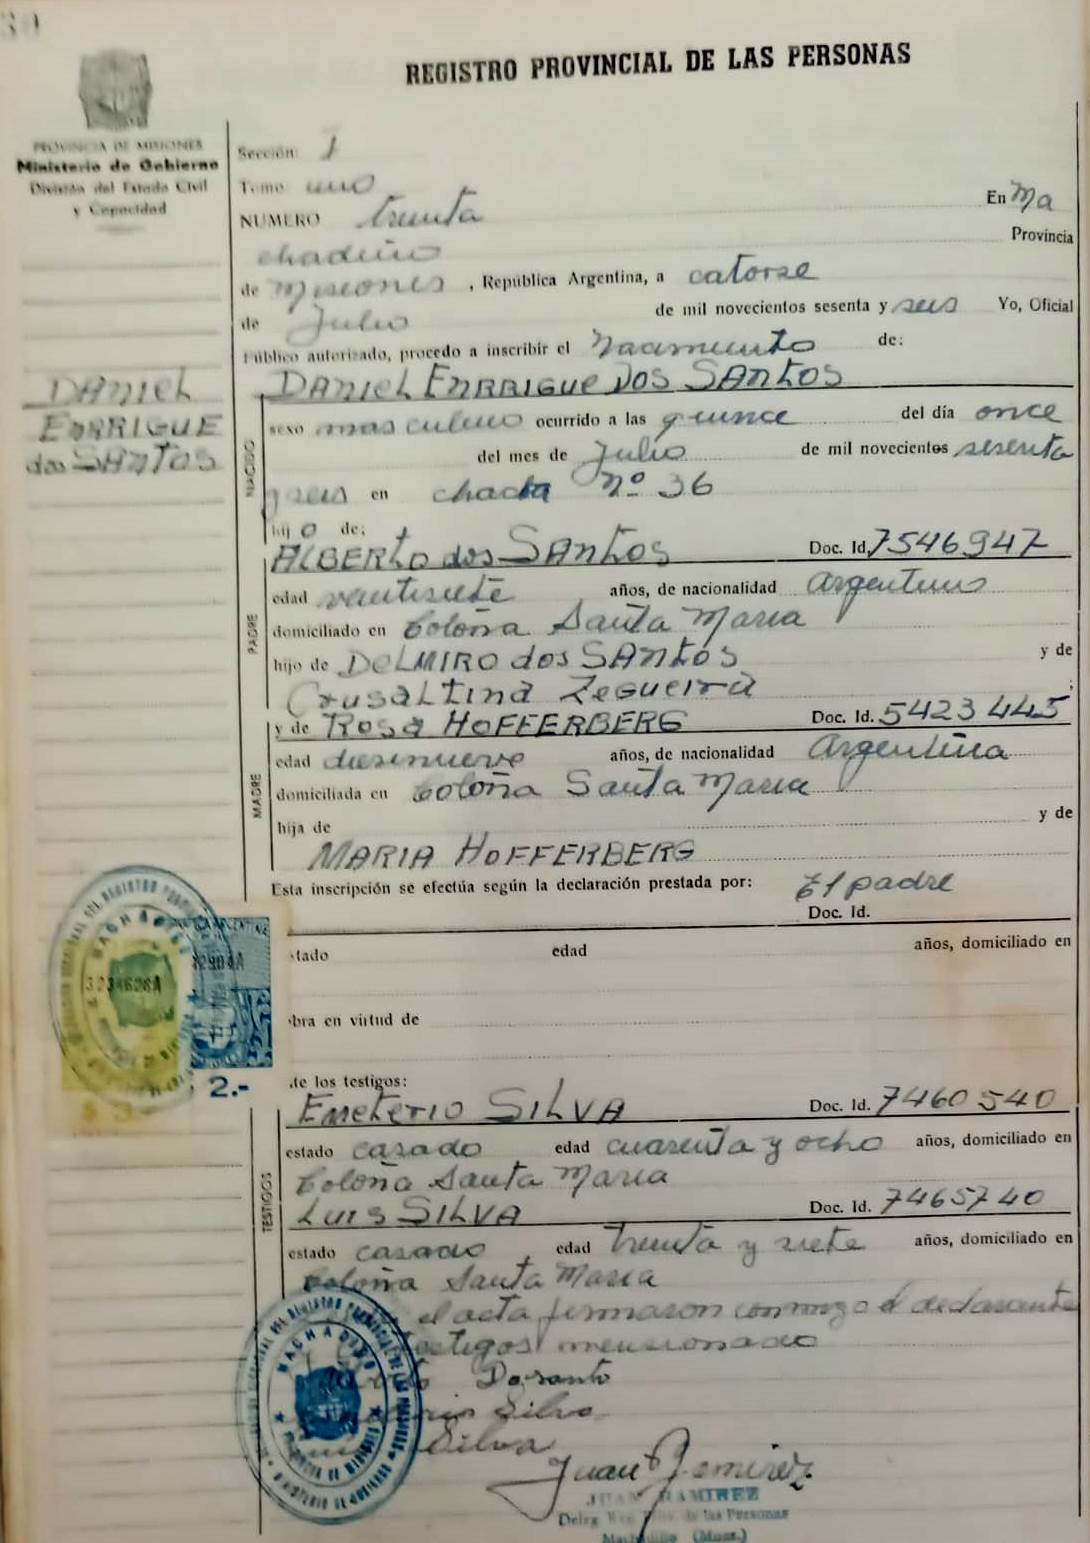 30
REGISTRO PROVINCIAL DE LAS PERSONAS
PROVINCIA DE MISIONES
Ministerio de Gobierno
División del Estado Civil
y Capacidad
Sección: I
Tomo uno
NUMERO treinta En Ma
chadiño Provincia
de Misiones, República Argentina, a catorse
de Julio de mil novecientos sesenta y seis Yo, Oficial
Público autorizado, procedo a inscribir el Nacimiento de:
DANIEL ENRRIGUE DOS SANtOS
DANIEL
ENRRIGUE
dos SANtOS
NACIDO
sexo masculino ocurrido a las quince del día once
del mes de Julio de mil novecientos sesenta
y seis en chacra Nº 36
hijo de:
PADRE
ALBERto dos SANtOS Doc. Id. 7546947
edad veintisiete años, de nacionalidad Argentino
domiciliado en Coloña Santa Maria
hijo de DELMIRO dos SANtOS y de
Crusaltina Zegueira ;
MADRE
y de ROSA HOFFERBERG Doc. Id. 5423445
edad diesinueve años, de nacionalidad Argentina
domiciliada en Coloña Santa Maria
hija de y de
MARIA HOFFERBERG
Esta inscripción se efectúa según la declaración prestada por: El padre
Doc. Id.
stado edad años, domiciliado en
obra en virtud de
de los testigos:
2.-
$ 3
TESTIGOS
EmeterIO SILVA Doc. Id. 7460540
estado casado edad cuarenta y ocho años, domiciliado en
Coloña Santa Maria
LUIS SILVA Doc. Id. 7465740
estado casado edad treinta y siete años, domiciliado en
Coloña Santa Maria
el acta firmaron conmigo el declarante
testigos mensionado
Dosanto
Silva
Silva
Juan Ramirez
JUAN RAMIREZ
de las Personas
(Mnes.)
MACHADIÑO
PROVINCIA DE MISIONES